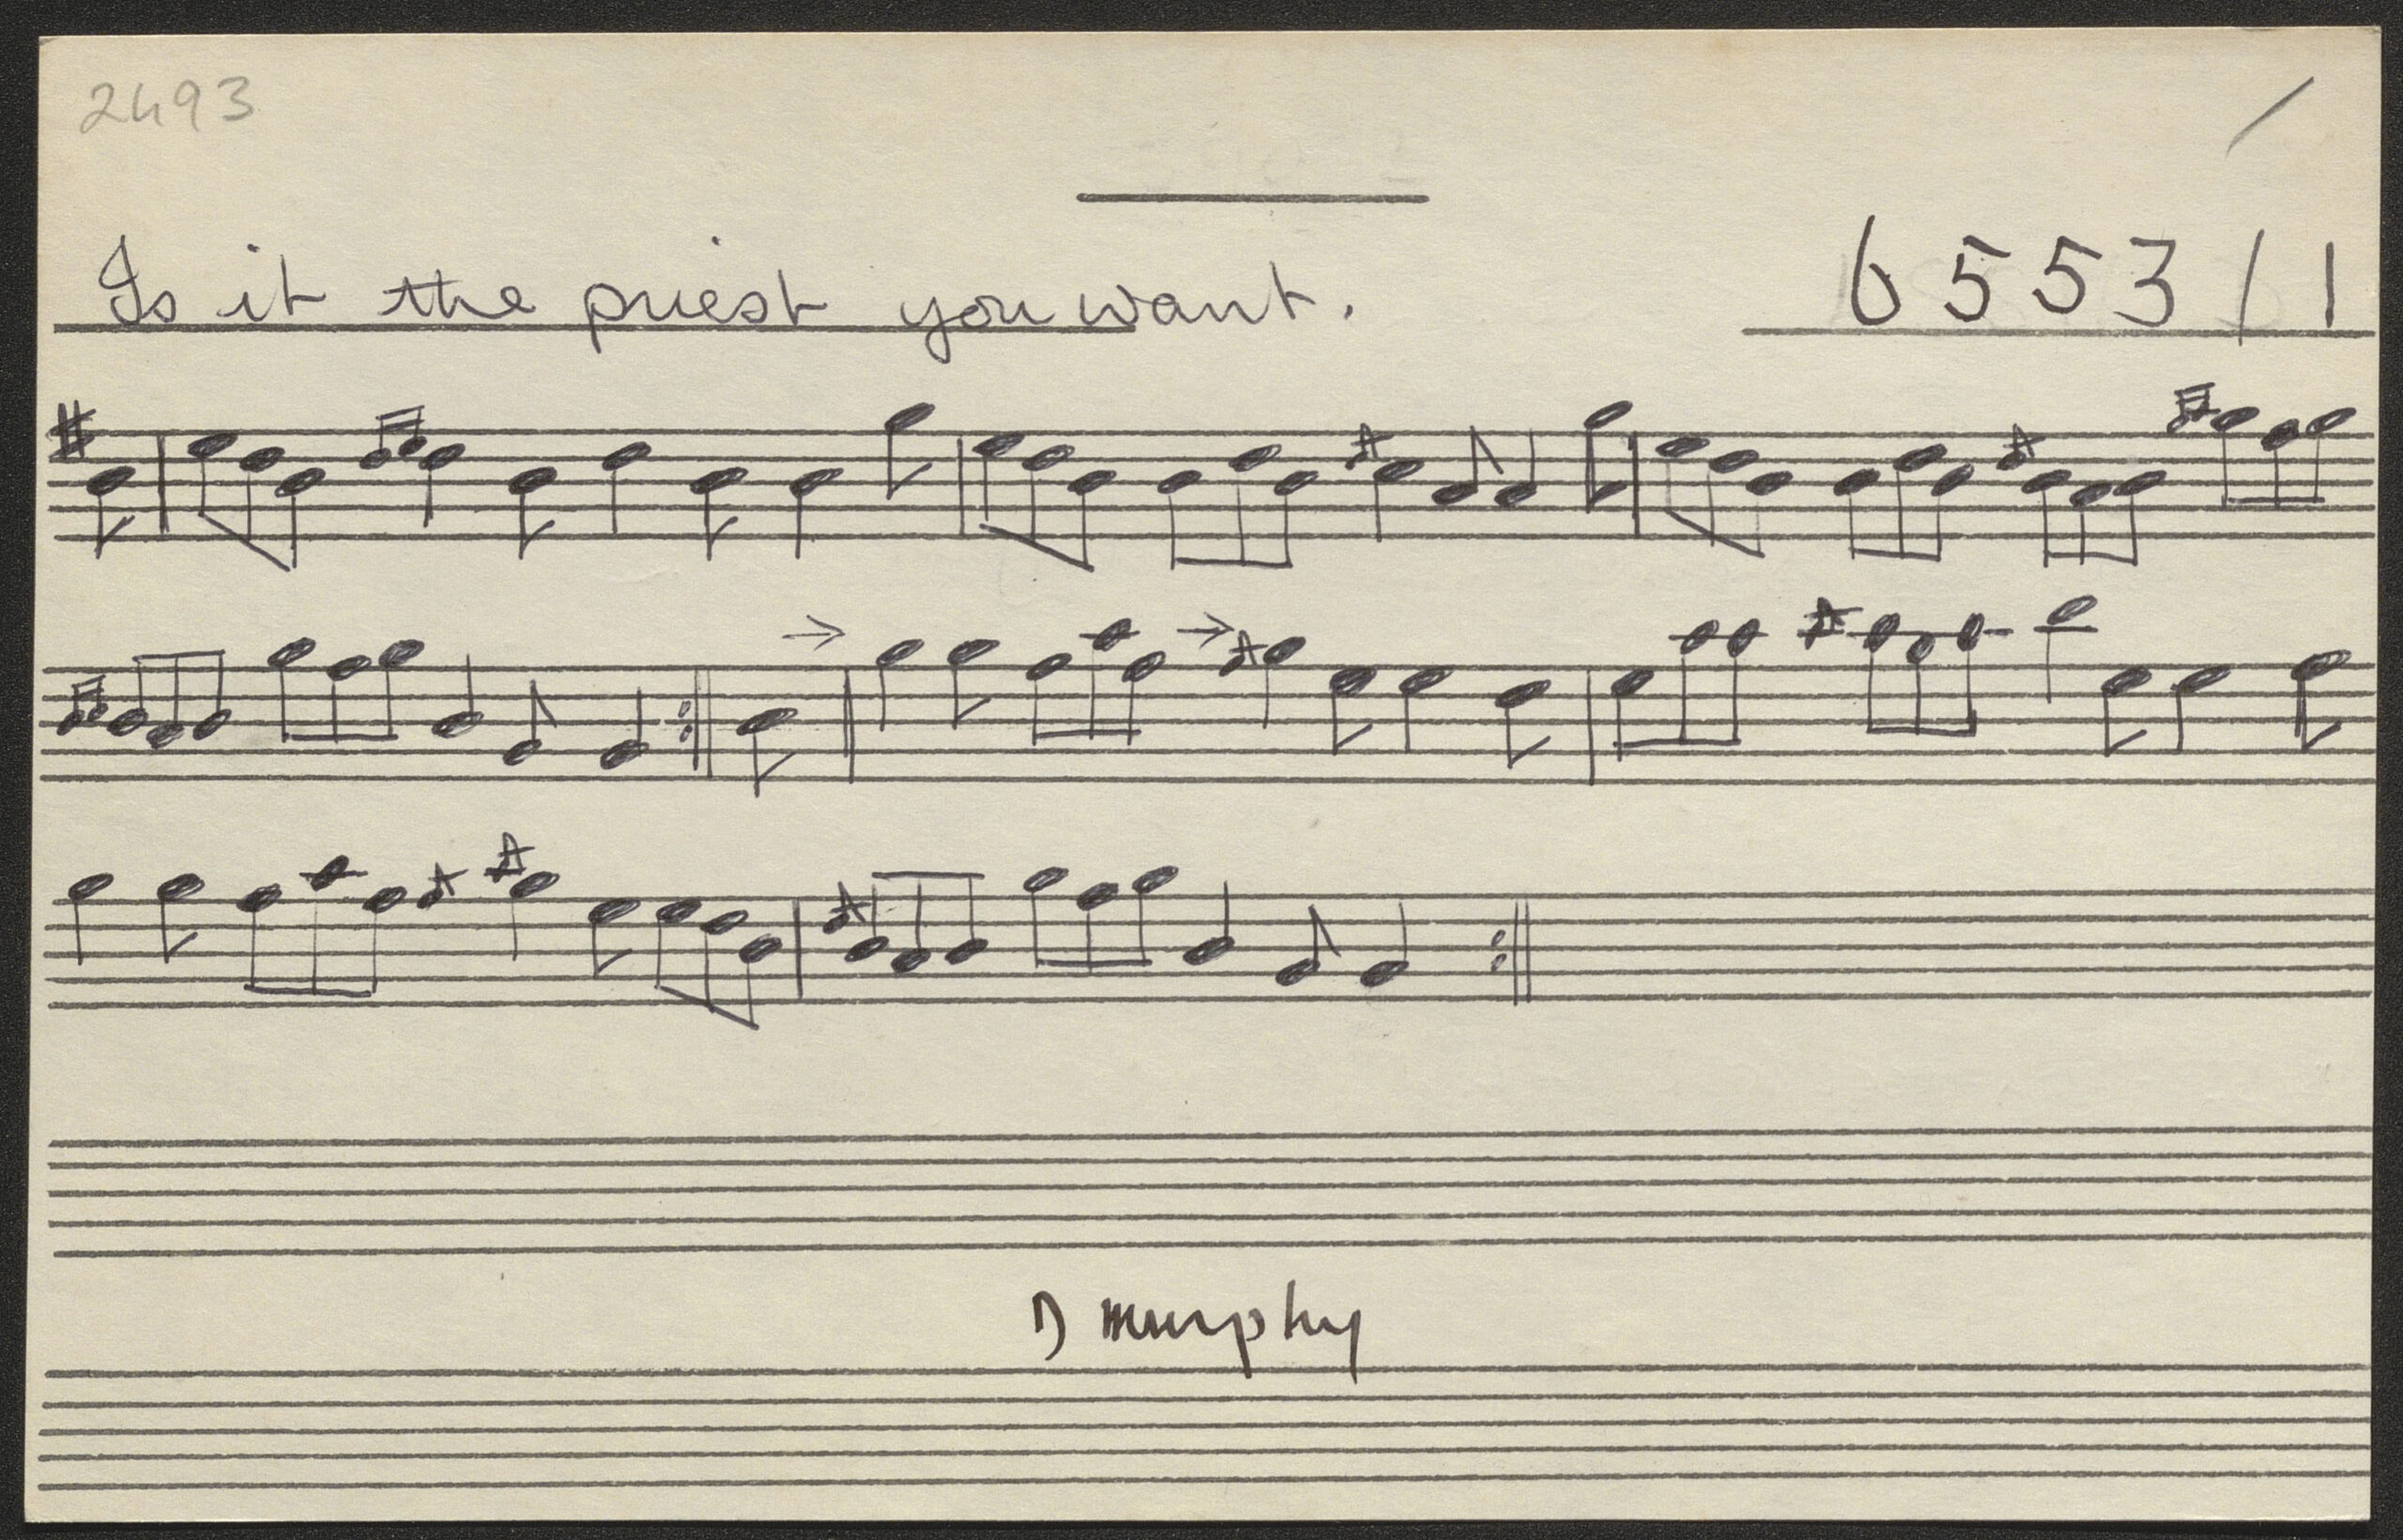 2493
/
Is it the priest you want.
6553/1
D Murphy